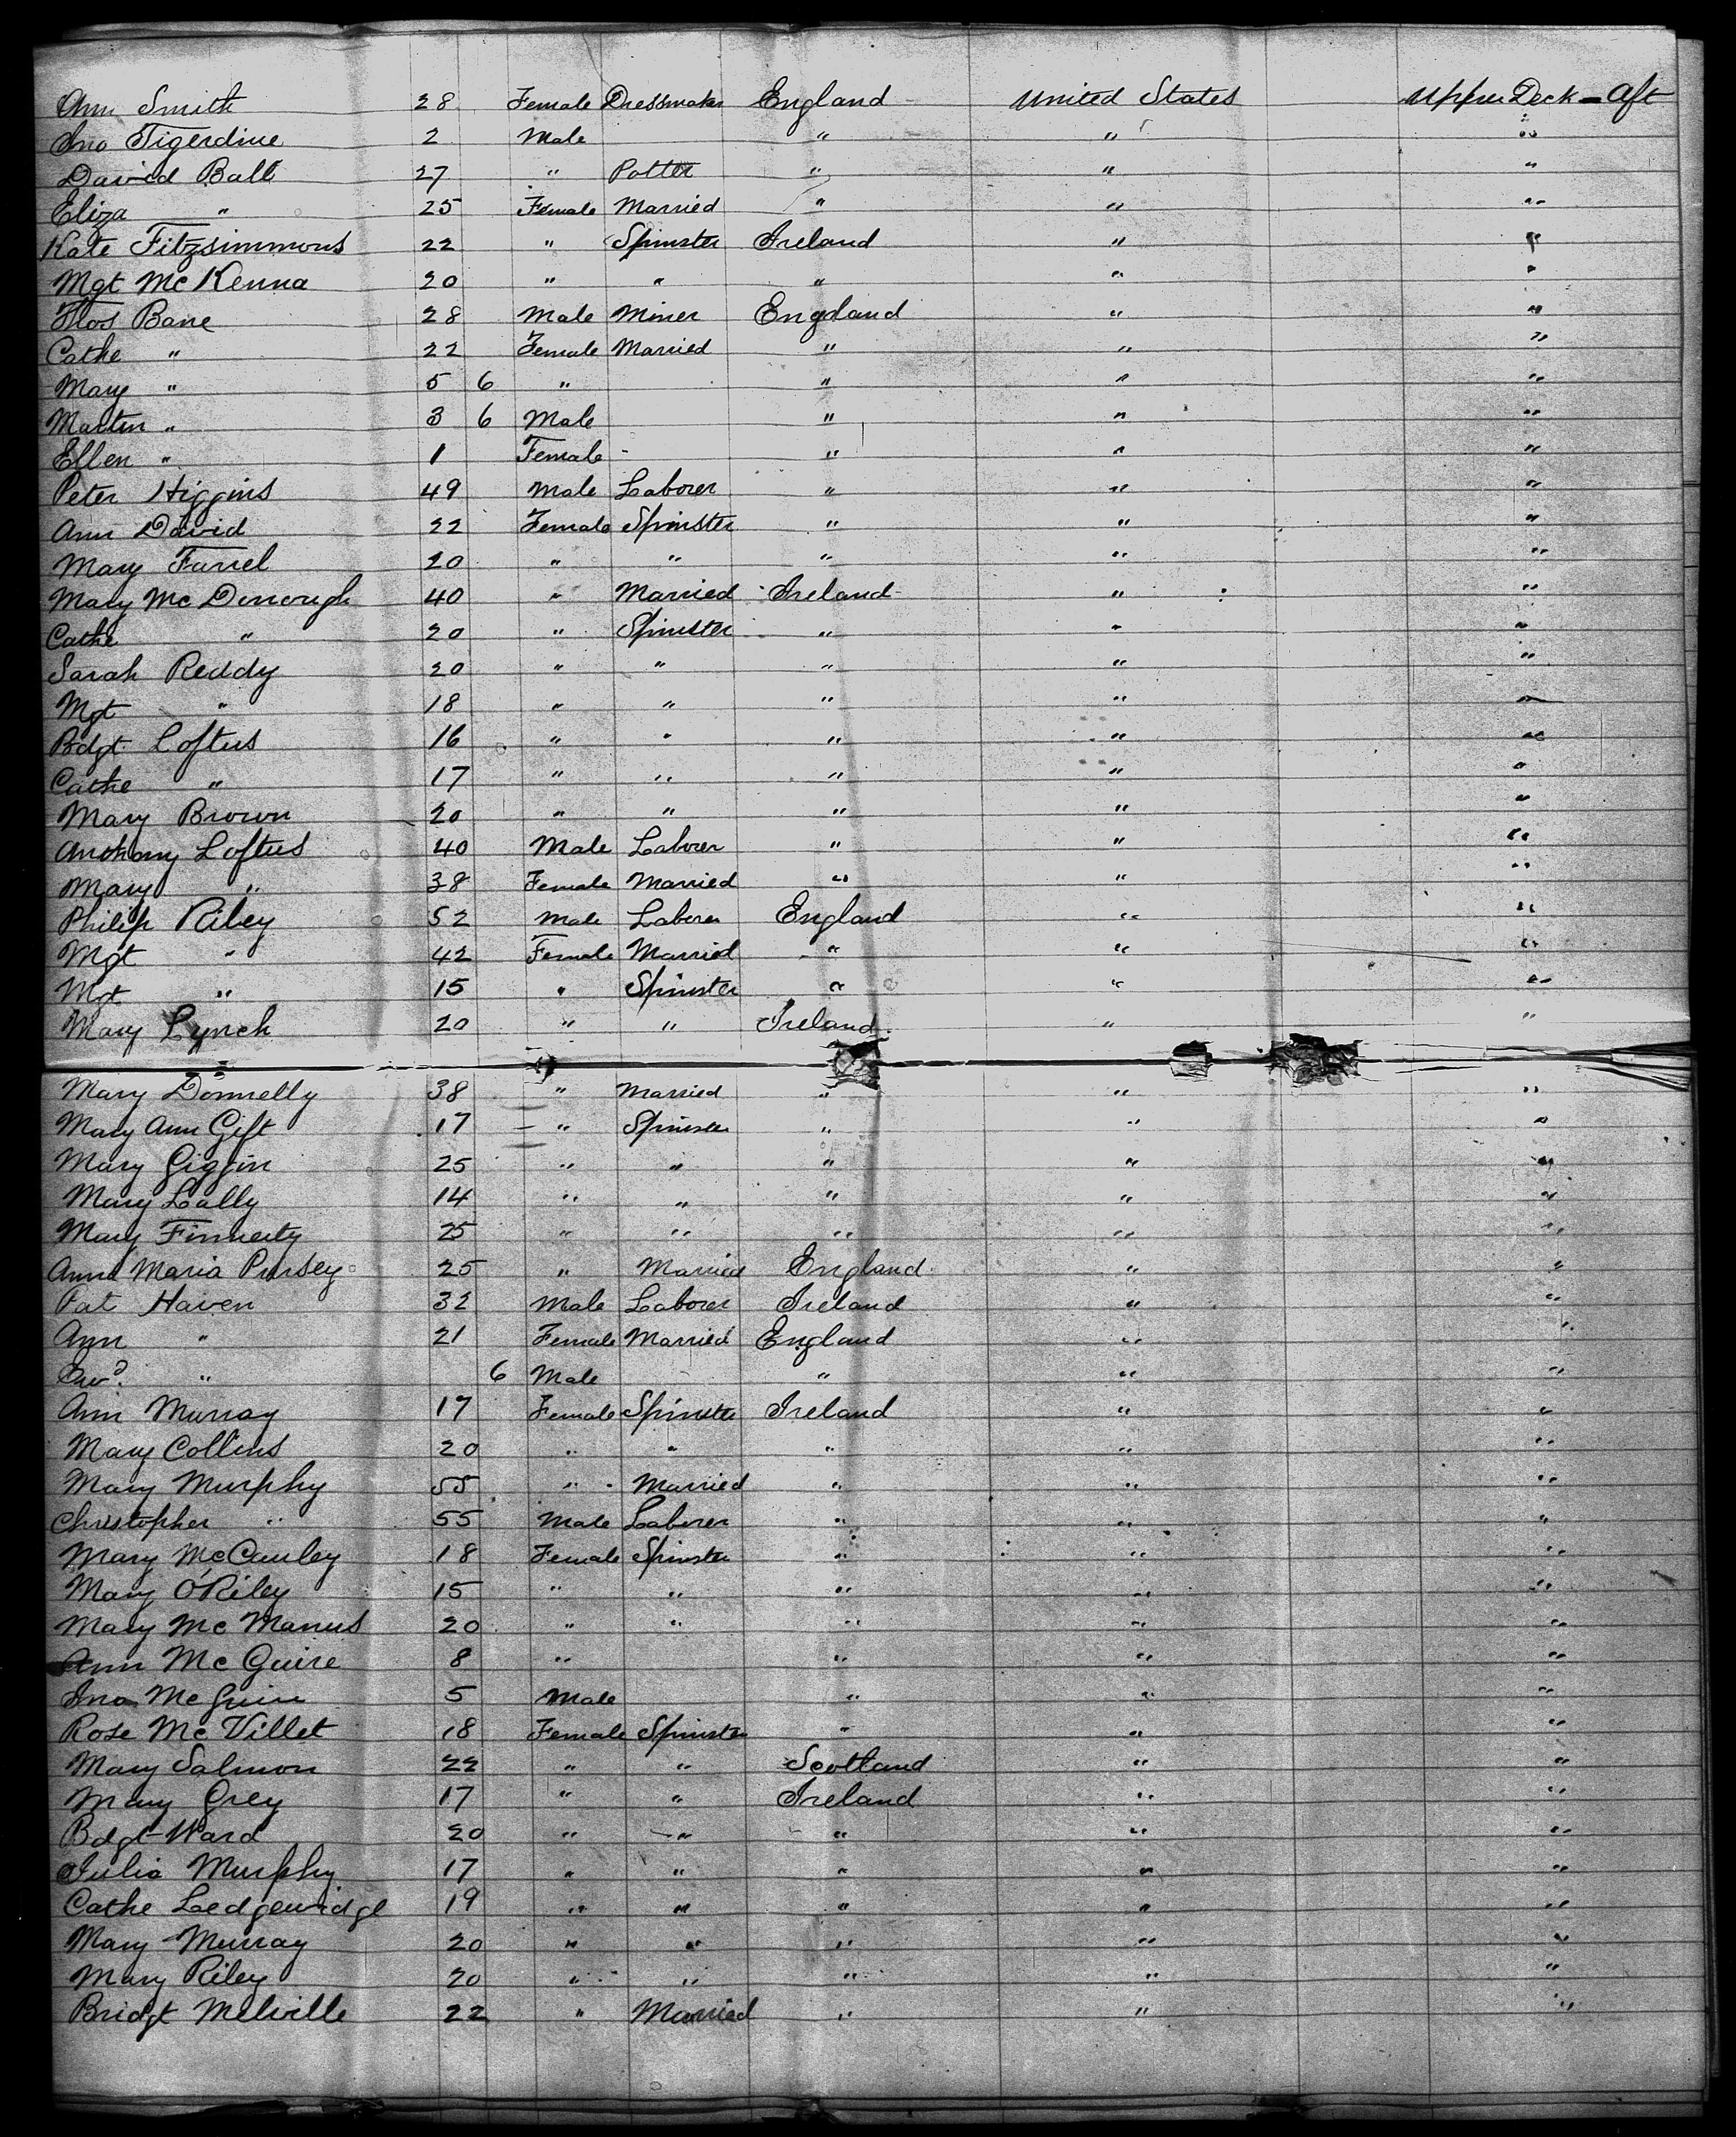 Ann Smith 28 Female Dressmaker England United States Upper Deck - Aft
Jno Tigerdine 2 Male " " "
David Ball 27 " Potter " " "
Eliza " 25 Female Married " " "
Kate Fitzsimmons 22 " Spinster Ireland " "
Mgt McKenna 20 " " " " "
Thos Bane 28 Male Miner England " "
Cathe " 22 Female Married " " "
Mary " 5 6 " " " "
Martin " 3 6 Male " " "
Ellen " 1 Female " " "
Peter Higgins 49 Male Laborer " " "
Ann David 22 Female Spinster " " "
Mary Farrel 20 " " " " "
Mary McDonough 40 " Married Ireland " "
Cathe " 20 " Spinster " " "
Sarah Reddy 20 " " " " "
Mgt " 18 " " " " "
Bdgt Loftus 16 " " " " "
Cathe " 17 " " " " "
Mary Brown 20 " " " " "
Anthony Loftus 40 Male Laborer " " "
Mary " 38 Female Married " " "
Philip Riley 52 Male Laborer England " "
Mgt " 42 Female Married " " "
Mgt " 15 " Spinster " " "
Mary Lynch 20 " " Ireland " "
Mary Donnelly 38 " Married " " "
Mary Ann Gift 17 " Spinster " " "
Mary Giggin 25 " " " " "
Mary Lally 14 " " " " "
Mary Finnerty 25 " " " " "
Anna Maria Pursey 25 " Married England " "
Pat Haven 32 Male Laborer Ireland " "
Ann " 21 Female Married England " "
" 6 Male " " "
Ann Murray 17 Female Spinster Ireland " "
Mary Collins 20 " " " " "
Mary Murphy 55 " Married " " "
Christopher " 55 Male Laborer " " "
Mary McCauley 18 Female Spinster " " "
Mary O'Riley 15 " " " " "
Mary McManus 20 " " " " "
Ann McGuire 8 " " " "
Jno McGuire 5 Male " " "
Rose McVillet 18 Female Spinster " " "
Mary Salmon 22 " " Scotland " "
Mary Grey 17 " " Ireland " "
Bdgt Ward 20 " " " " "
Julia Murphy 17 " " " " "
Cathe Ledgewidge 19 " " " " "
Mary Murray 20 " " " " "
Mary Riley 20 " " " " "
Bridgt Melville 22 " Married " " "